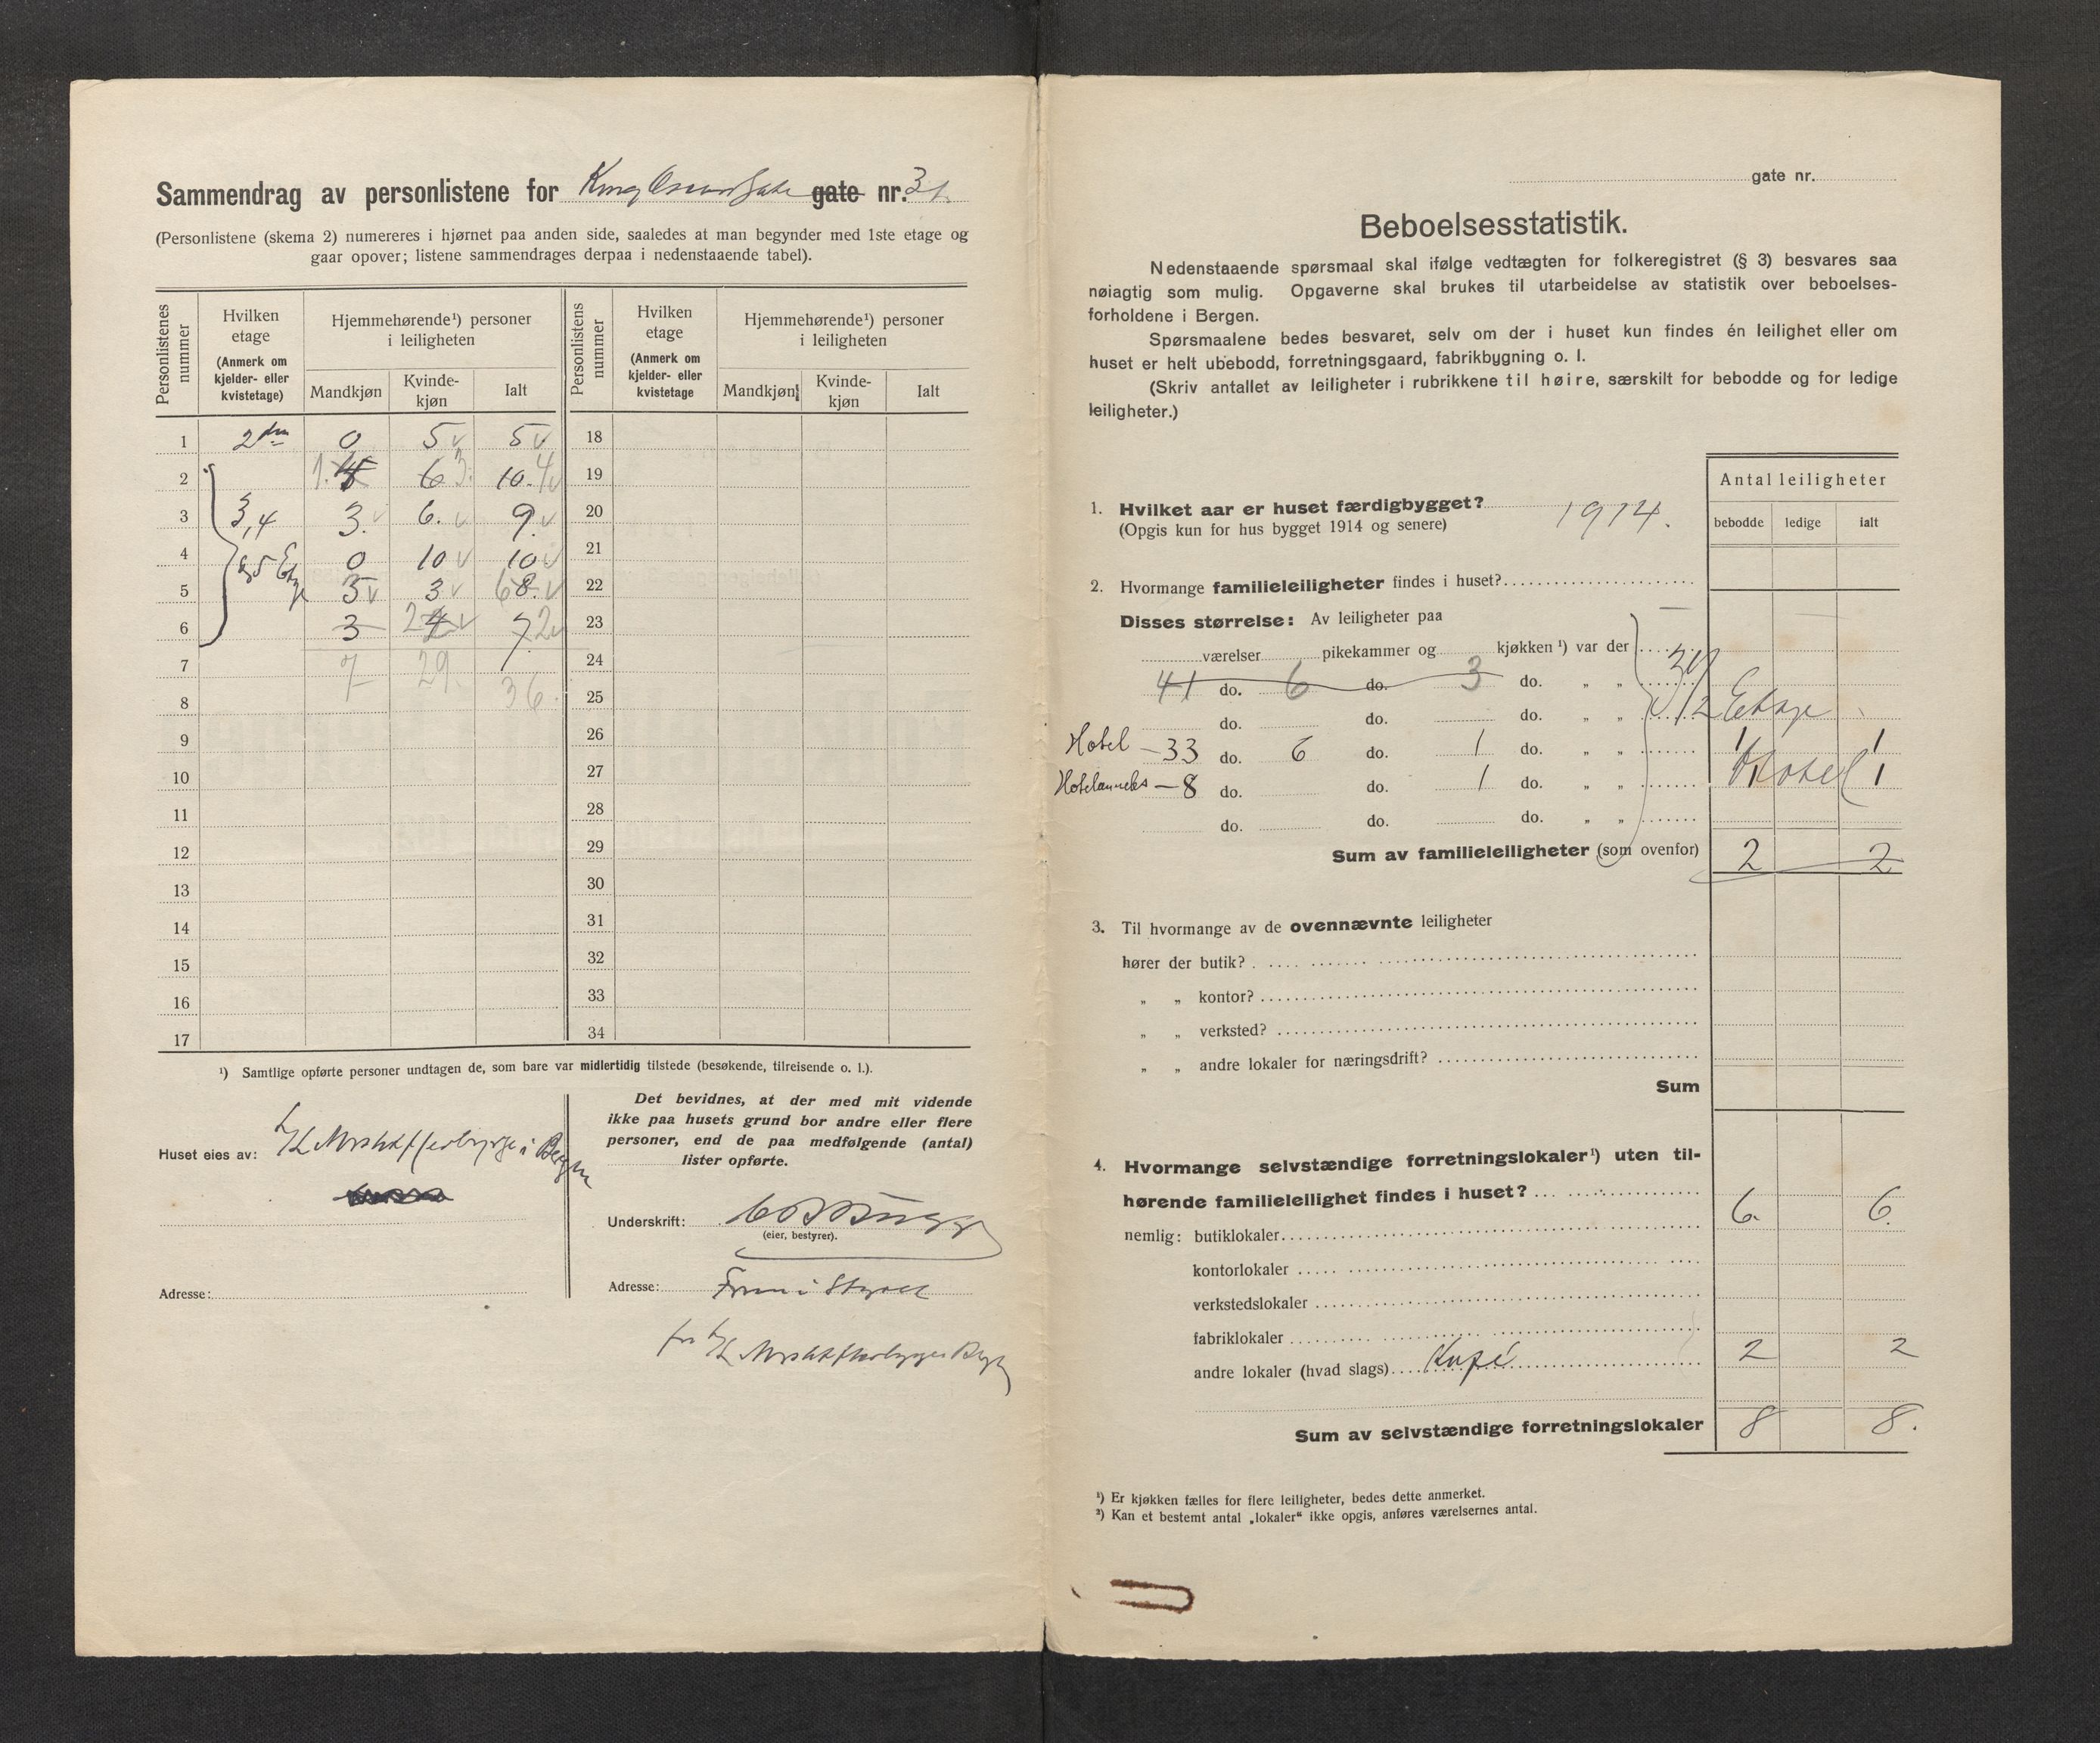 Sammendrag av personlistene for Kong Oscars Gate gate nr. 31.
(Personlistene (skema 2) numereres i hjørnet paa anden side, saaledes at man begynder med 1ste etage og
gaar opover; listene sammendrages derpaa i nedenstaaende tabel).
Personlistenes nummer
Hvilken etage (Anmerk om kjelder- eller kvistetage)
Hjemmehørende¹) personer i leiligheten
Mandkjøn Kvinde-kjøn Ialt
Personlistens nummer
Hvilken etage (Anmerk om kjelder- eller kvistetage)
Hjemmehørende¹) personer i leiligheten
Mandkjøn Kvinde-kjøn Ialt
1 2den 0 5 v 5 v 18
2 1. 6 3. 10. 4 v 19
3 3,4 3. v 6. v 9. v 20
4 0 10 v 10 v 21
5 3 v 3 v 6 8. v 22
6 3 2 4 v 7 2 v 23
7 7 29. 24
8 36. 25
9 26
10 27
11 28
12 29
13 30
14 31
15 32
16 33
17 34
¹) Samtlige opførte personer undtagen de, som bare var midlertidig tilstede (besøkende, tilreisende o. l.).
Huset eies av: i Bergen
Adresse:
Det bevidnes, at der med mit vidende
ikke paa husets grund bor andre eller flere
personer, end de paa medfølgende (antal)
lister opførte.
Underskrift:
(eier, bestyrer).
Adresse:
gate nr.
Beboelsesstatistik.
Nedenstaaende spørsmaal skal ifølge vedtægten for folkeregistret (§ 3) besvares saa
nøiagtig som mulig. Opgaverne skal brukes til utarbeidelse av statistik over beboelses-
forholdene i Bergen.
Spørsmaalene bedes besvaret, selv om der i huset kun findes én leilighet eller om
huset er helt ubebodd, forretningsgaard, fabrikbygning o. l.
(Skriv antallet av leiligheter i rubrikkene til høire, særskilt for bebodde og for ledige
leiligheter.)
Antal leiligheter
bebodde ledige ialt
1. Hvilket aar er huset færdigbygget? 1914.
(Opgis kun for hus bygget 1914 og senere)
2. Hvormange familieleiligheter findes i huset?
Disses størrelse: Av leiligheter paa
værelser pikekammer og kjøkken ¹) var der
41 do. 6 do. 3 do. „ „
do. do. do. „ „ 2 Etage
Hotel – 33 do. 6 do. 1 do. „ „ 1 1
Hotelanneks – 8 do. do. 1 do. „ „ Hotel 1
do. do. do. „ „
Sum av familieleiligheter (som ovenfor) 2 2
3. Til hvormange av de ovennævnte leiligheter
hører der butik?
„ „ kontor?
„ „ verksted?
„ „ andre lokaler for næringsdrift?
Sum
4. Hvormange selvstændige forretningslokaler¹) uten til-
hørende familieleilighet findes i huset? 6. 6.
nemlig: butiklokaler
kontorlokaler
verkstedslokaler
fabriklokaler
andre lokaler (hvad slags) Kafé 2 2
Sum av selvstændige forretningslokaler 8 8.
¹) Er kjøkken fælles for flere leiligheter, bedes dette anmerket.
²) Kan et bestemt antal „lokaler“ ikke opgis, anføres værelsernes antal.